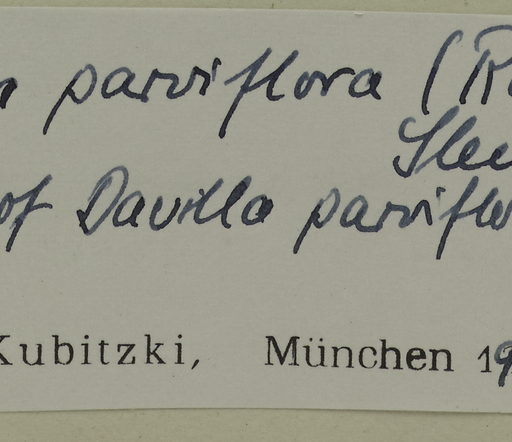 n parviflora (R
Sleu
of Davilla parviflo
Kubitzki, München 19